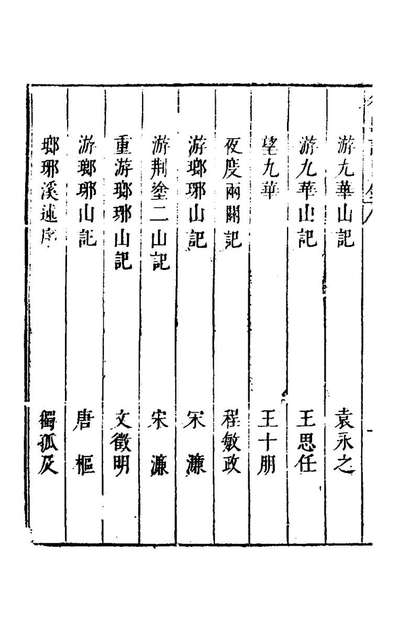 游九華山記 袁永之
游九華山記 王思任
望九華 王十朋
夜度兩關記 程敏政
游瑯琊山記 宋濂
游荆塗二山記 宋濂
重游瑯琊山記 文徵明
游瑯琊山記 唐樞
瑯琊溪述序 獨孤及